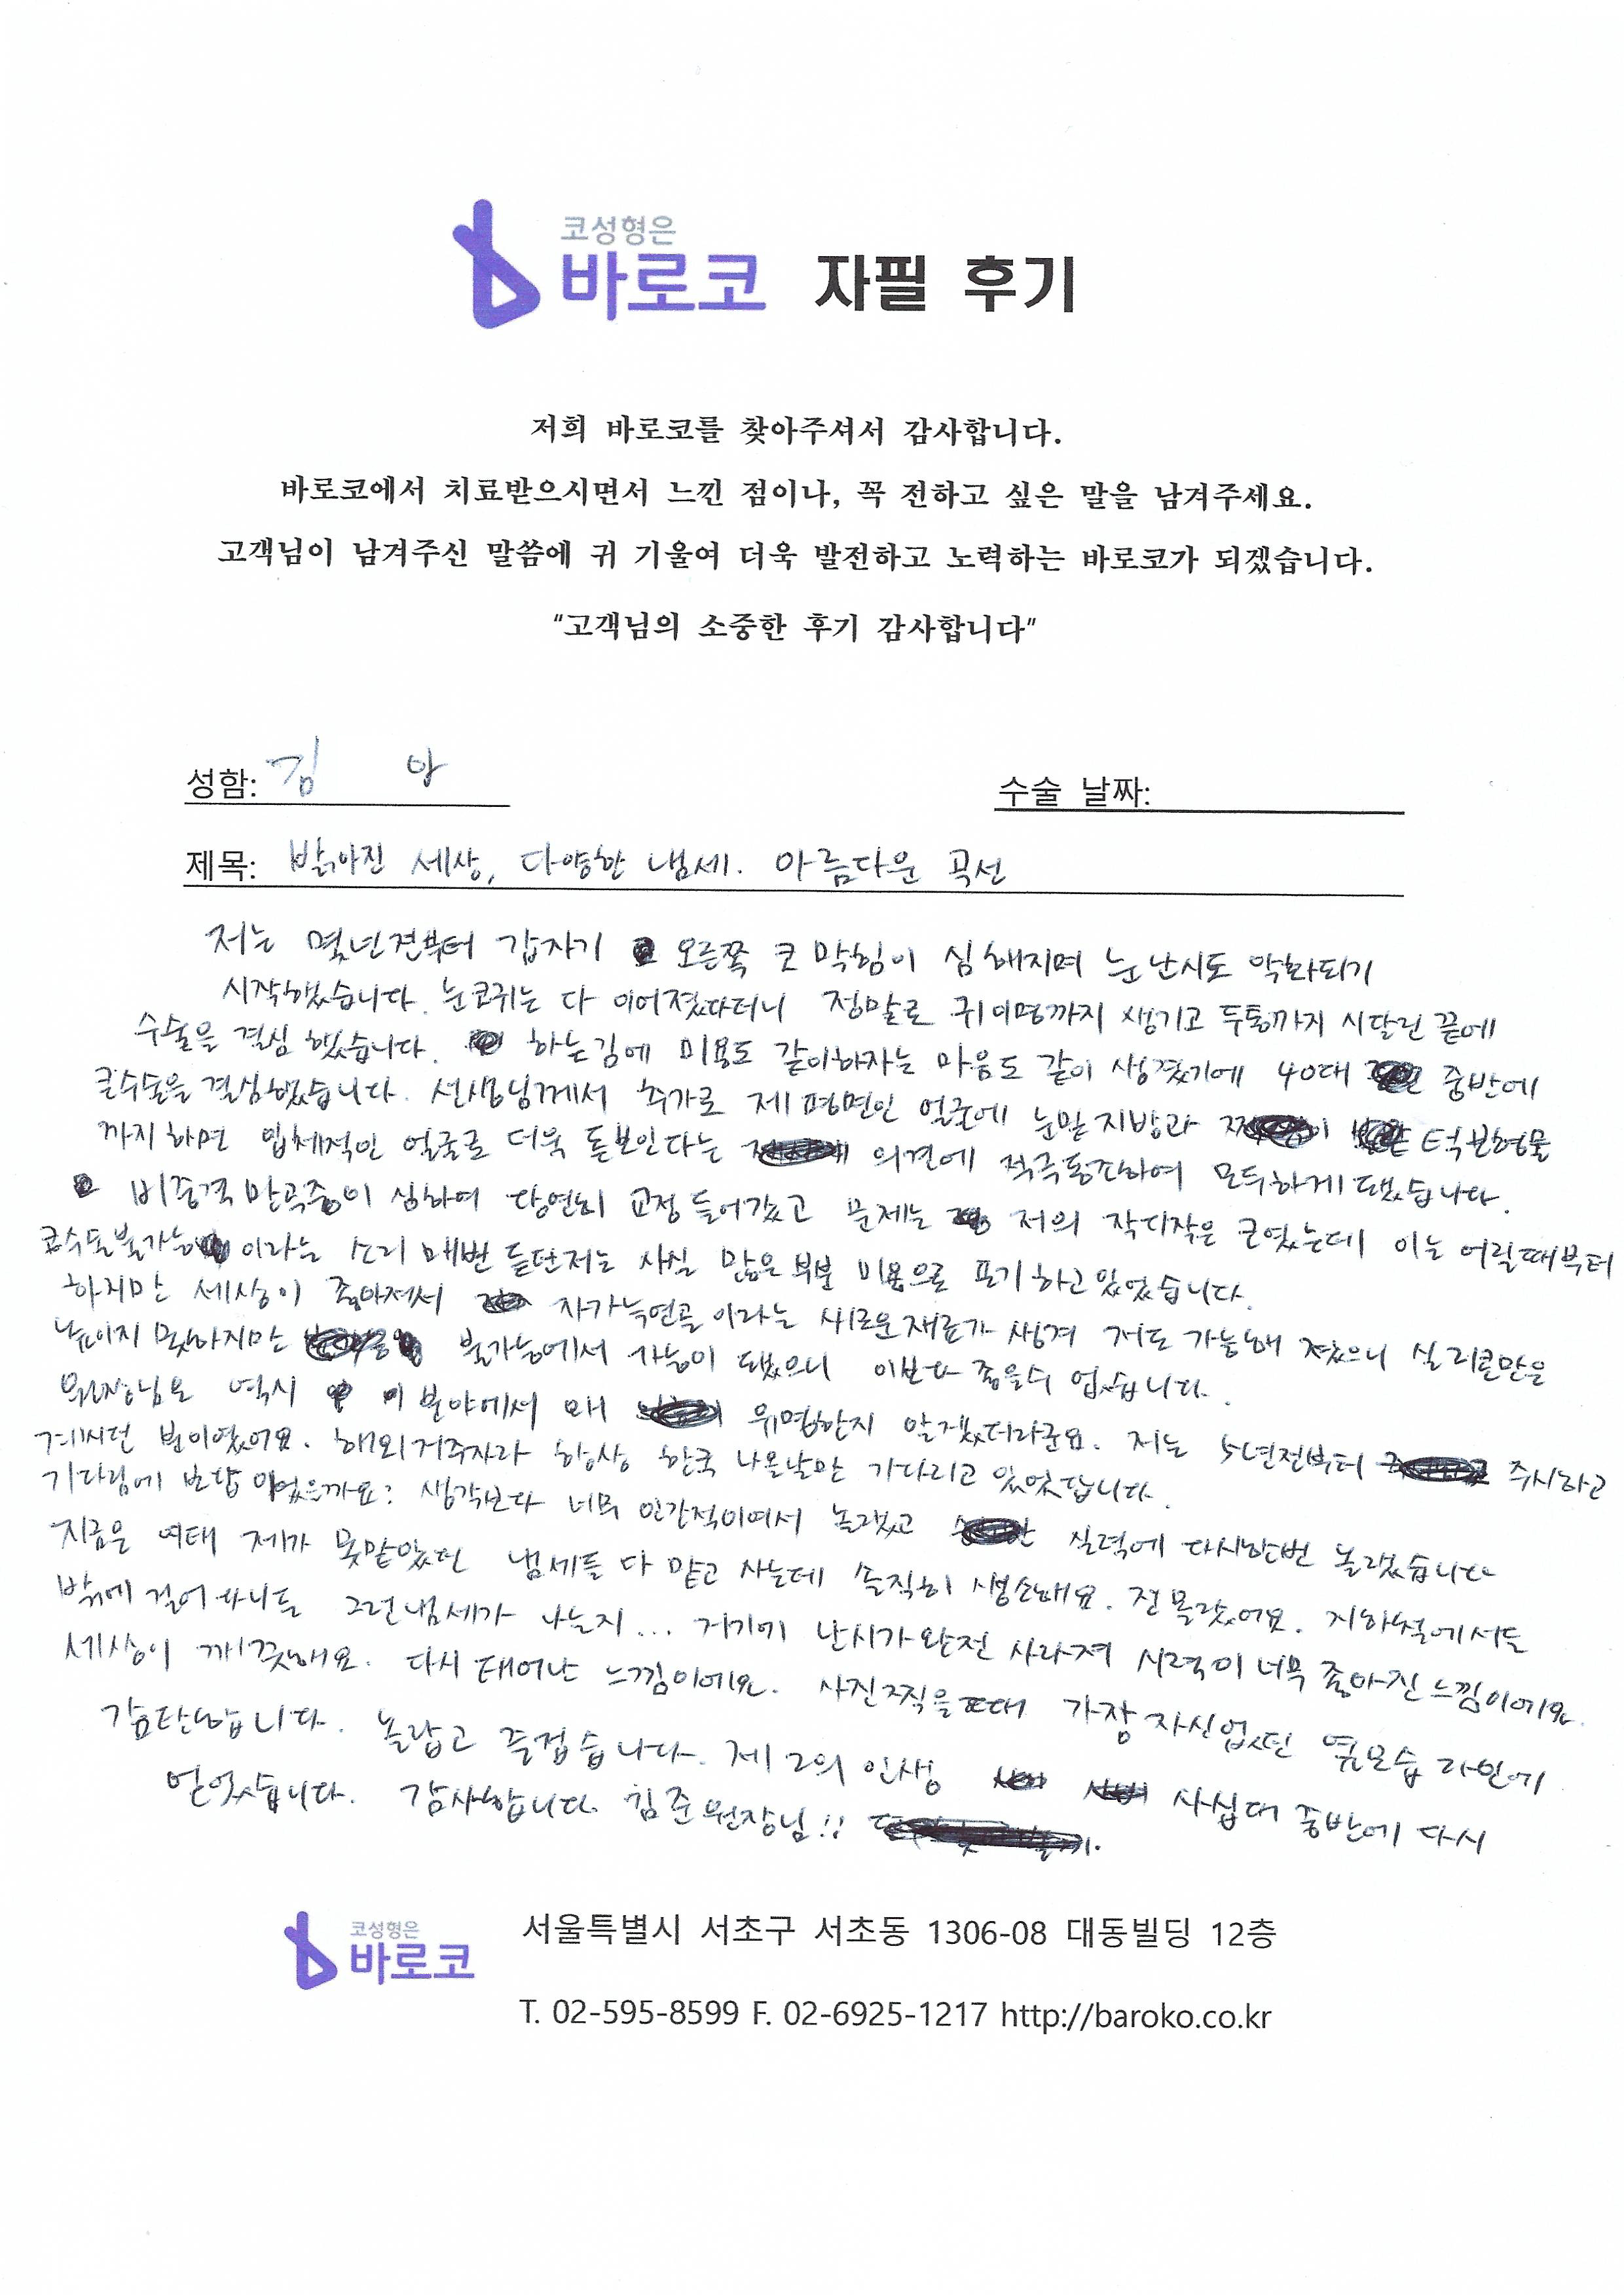 코성형은
바로코 자필 후기
저희 바로코를 찾아주셔서 감사합니다.
바로코에서 치료받으시면서 느낀 점이나, 꼭 전하고 싶은 말을 남겨주세요.
고객님이 남겨주신 말씀에 귀 기울여 더욱 발전하고 노력하는 바로코가 되겠습니다.
“고객님의 소중한 후기 감사합니다”
성함: 김 아 수술 날짜:
제목: 밝아진 세상, 다양한 냄세. 아름다운 곡선
저는 몇년전부터 갑자기 오른쪽 코 막힘이 심해지며 눈 난시도 악화되기
시작했습니다. 눈코귀는 다 이어졌다더니 정말로 귀 이명까지 생기고 두통까지 시달린 끝에
수술을 결심 했습니다. 하는김에 미용도 같이하자는 마음도 같이 생겼기에 40대 중반에
큰수술을 결심했습니다. 선생님께서 추가로 제 평면인 얼굴에 눈밑 지방과 턱 보형물
까지 하면 입체적인 얼굴로 더욱 돋보인다는 의견에 적극동감하여 모두하게 됐습니다.
비중격 만곡증이 심하여 당연히 교정 들어갔고 문제는 저의 작디작은 코였는데 이는 어릴때부터
코수술불가능 이라는 소리 매번 듣던저는 사실 많은 부분 미용으로 포기 하고 있었습니다.
하지만 세상이 좋아져서 자가늑연골 이라는 새로운 재료가 생겨 저도 가능해 졌으니 실리콘만은
높이지 못하지만 불가능에서 가능이 됐으니 이보다 좋을수 없습니다.
원장님도 역시 이 분야에서 왜 유명한지 알겠더라군요. 저는 5년전부터 주시하고
계시던 분이였어요. 해외거주자라 항상 한국 나올날만 기다리고 있었답니다.
기다림에 보답 이었을까요? 생각보다 너무 인간적이여서 놀랬고 실력에 다시한번 놀랬습니다
지금은 여태 제가 못맡았던 냄세들 다 맡고 사는데 솔직히 생소해요. 전 몰랐어요. 지하철에서든
밖에 걸어 다니든 그런냄세가 나는지... 거기에 난시가 완전 사라져 시력이 너무 좋아진 느낌이에요.
세상이 깨끗해요. 다시 태어난 느낌이에요. 사진찍을때 가장 자신없던 옆모습 라인에
감탄합니다. 놀랍고 즐겁습니다. 제 2의 인생 사십대 중반에 다시
얻었습니다. 감사합니다. 김준 원장님!!
코성형은
바로코
서울특별시 서초구 서초동 1306-08 대동빌딩 12층
T. 02-595-8599 F. 02-6925-1217 http://baroko.co.kr